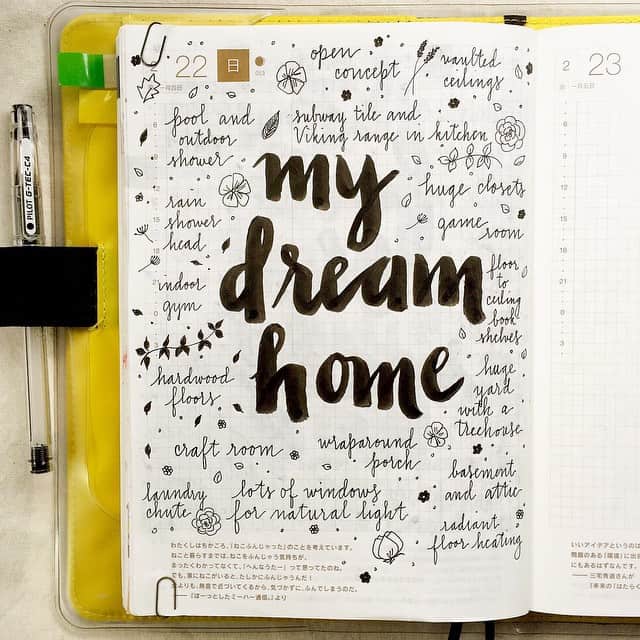 22 日 013
一月五日
open
concept
vaulted
ceilings
pool and
outdoor
shower
subway tile and
Viking range in kitchen
my
dream
home
huge closets
rain
shower
head
game
room
indoor
gym
floor
to
ceiling
book
shelves
hardwood
floors
huge
yard
with a
treehouse
craft room
wraparound
porch
basement
and attic
laundry
chute
lots of windows
for natural light
radiant
floor heating
わたくしはちかごろ、「ねこふんじゃった」のことを考えています。
ねこと暮らすまでは、ねこをふんじゃう気持ちが、
まったくわかってなくて、「へんなうたー」って思ってたのね。
でも、家にねこがいると、たしかにふんじゃうんだ！
というよりも、熱意で近づいてくるから、気づかずに、ふんでしまうのだ。
──『ぼーっとしたミーハー通信。』より
2
23
PILOT G-TEC-C4
いいアイデアというのは
問題のある「環境」に出
にもあるはずなんです。
── 三宅秀道さんが
『未来の「はたらく